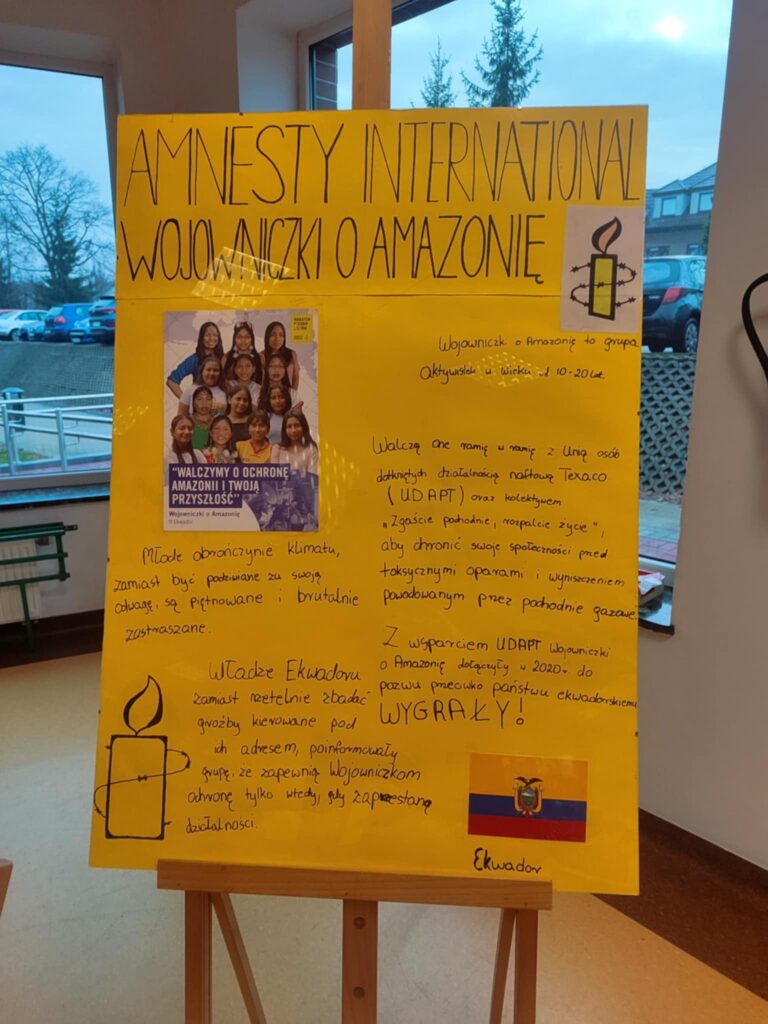 AMNESTY INTERNATIONAL
WOJOWNICZKI O AMAZONIĘ
"WALCZYMY O OCHRONĘ
AMAZONII I TWOJĄ
PRZYSZŁOŚĆ"
Wojowniczki o Amazonię
Ekwador
Młode obrończynie klimatu,
zamiast być podziwiane za swoją
odwagę, są piętnowane i brutalnie
zastraszane.
Władze Ekwadoru
zamiast rzetelnie zbadać
groźby kierowane pod
ich adresem, poinformowały
grupę, że zapewnią Wojowniczkom
ochronę tylko wtedy, gdy zaprzestaną
działalności.
Wojowniczk o Amazonię to grupa
aktywistek w wieku od 10-20 lat.
Walczą one ramię w ramię z Unią osób
dotkniętych działalnością naftową Texaco
(UDAPT) oraz kolektywem
„Zgaście pochodnie, rozpalcie życie",
aby chronić swoje społeczności przed
toksycznymi oparami i wyniszczeniem
powodowanym przez pochodnie gazowe.
Z wsparciem UDAPT Wojowniczki
o Amazonię dołączyły w 2020r. do
pozwu przeciwko państwu ekwadorskiemu
WYGRAŁY!
Ekwador